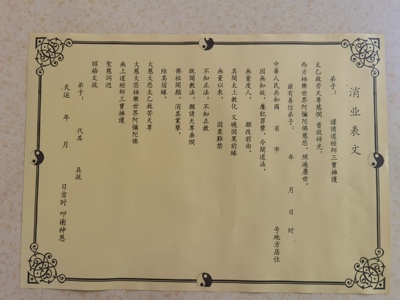 消业表文
弟子： 謹請道經師三寶擁護
太乙救苦天尊慈憫 普放祥光。
西方極樂世界阿彌陀佛慈悲，照遍塵世。
兹有善信弟子： 年 月 日 时
中華人民共和國 省 市 号地方居住
因無知故，廣犯罪孽，今聞道法，
無量度人， 願改前由，
其聞太上教化 又曉因果前緣
無量以來， 因果難禁
不知正法，不知正教
既聞教法，願請天尊垂憫
佛祖開顏，消其業孽，
除其宿緣。
大慈大悲太乙救苦天尊
大慈大悲極樂世界阿彌陀佛
無上道經師三寶擁護
聖慈洞
昭格文疏
弟子： 代其 具疏
天运 年 月 日吉时 叩谢神恩